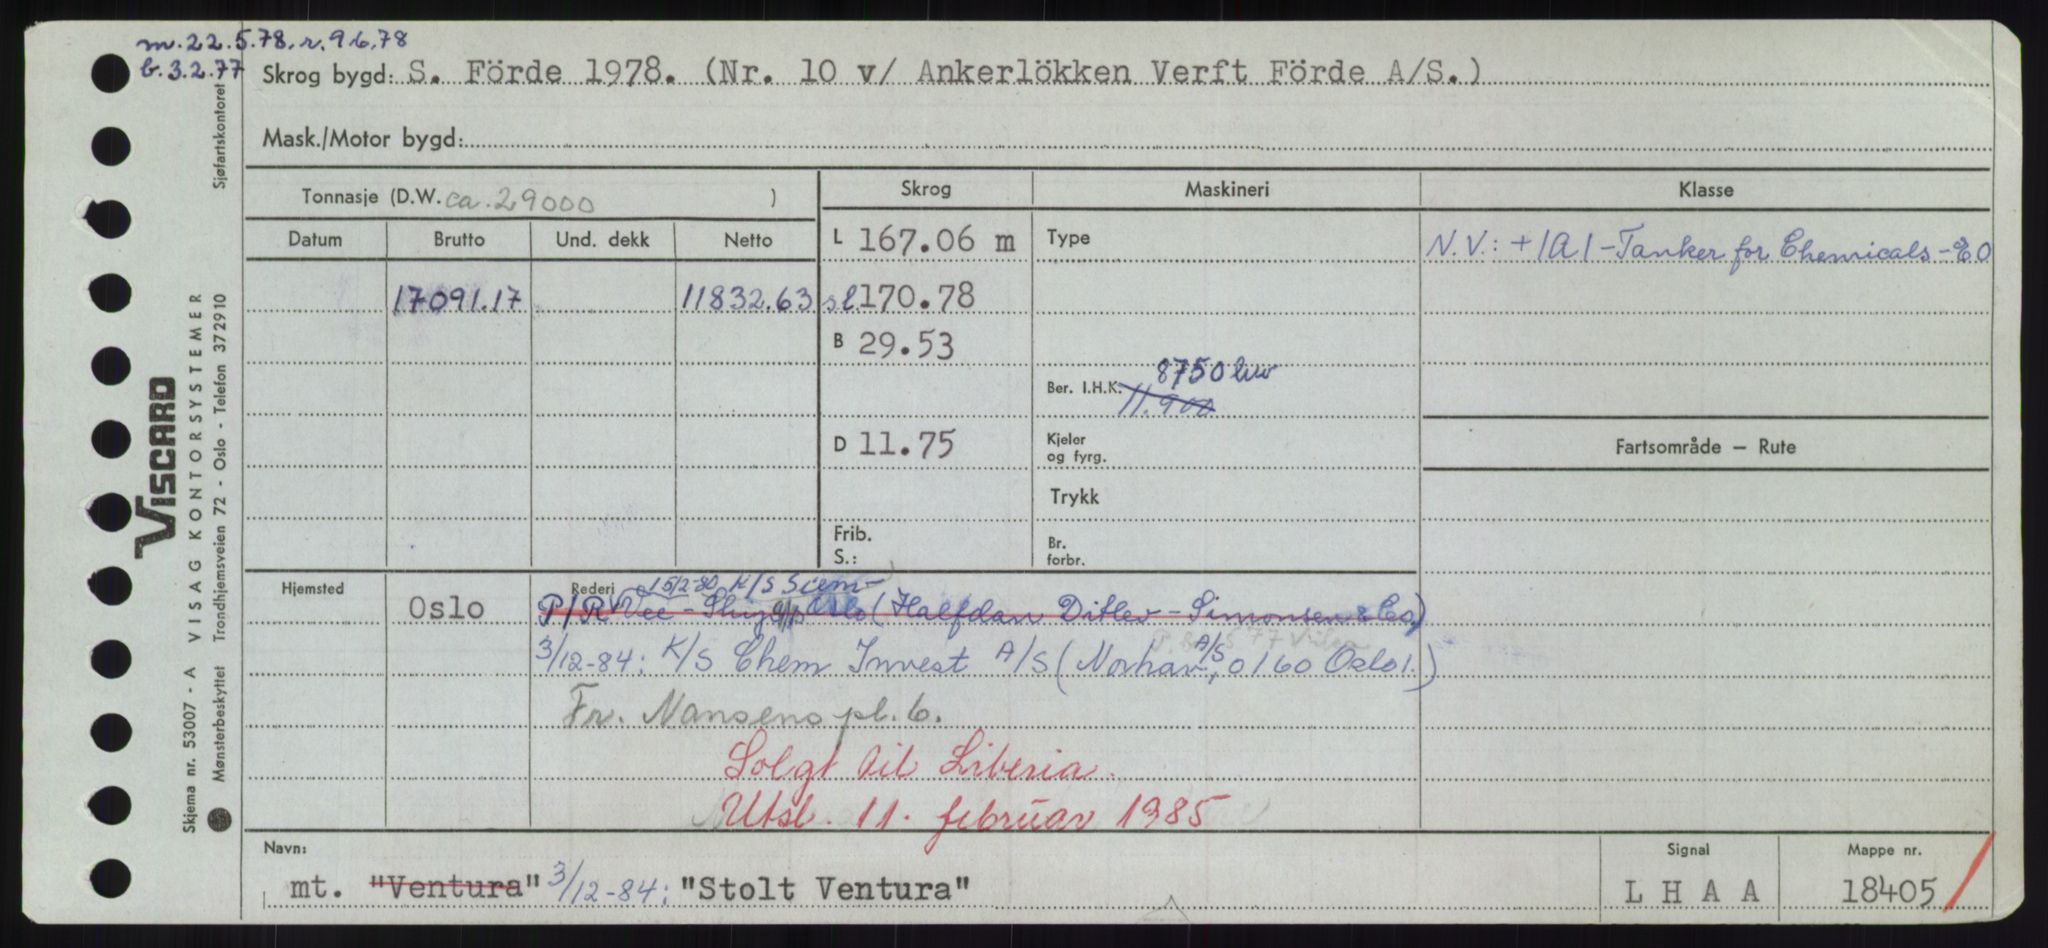 m. 22.5.78. r. 9.6.78
b. 3.2.77
Skrog bygd: S. Förde 1978. (Nr. 10 v/ Ankerlökken Verft Förde A/S.)
Mask./Motor bygd:
Tonnasje (D.W. ca. 29000 )
Skrog
Maskineri
Klasse
Datum Brutto Und. dekk Netto
L 167.06 m
Type
N.V.: +1A1-Tanker for Chemicals-E0
17091.17 11832.63
s.l. 170.78
B 29.53
8750 kw
Ber. I.H.K. 11.900
D 11.75
Kjeler
og fyrg.
Fartsområde – Rute
Trykk
Frib.
S.:
Br.
forbr.
Hjemsted
Rederi
15/2-80 K/S Scem-
Oslo
P/R Vee - A/S Oslo (Halfdan Ditlev-Simonsen & Co.)
3/12-84: K/S Chem Invest A/S (Norhav A/S, 0160 Oslo 1.)
Fr. Nansens pl. 6.
Solgt til Liberia.
Utsl. 11. februar 1985
Navn:
mt. "Ventura" 3/12-84: "Stolt Ventura"
Signal
L H A A
Mappe nr.
18405
Sjøfartskontoret
VISCARD
VISAG KONTORSYSTEMER
Trondhjemsveien 72 - Oslo - Telefon 372910
Skjema nr. 53007 - A
Mønsterbeskyttet